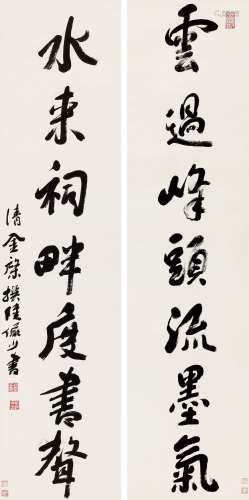 雲過峰頭流墨氣
水來祠畔度書聲
清金檠撰陸儼少書